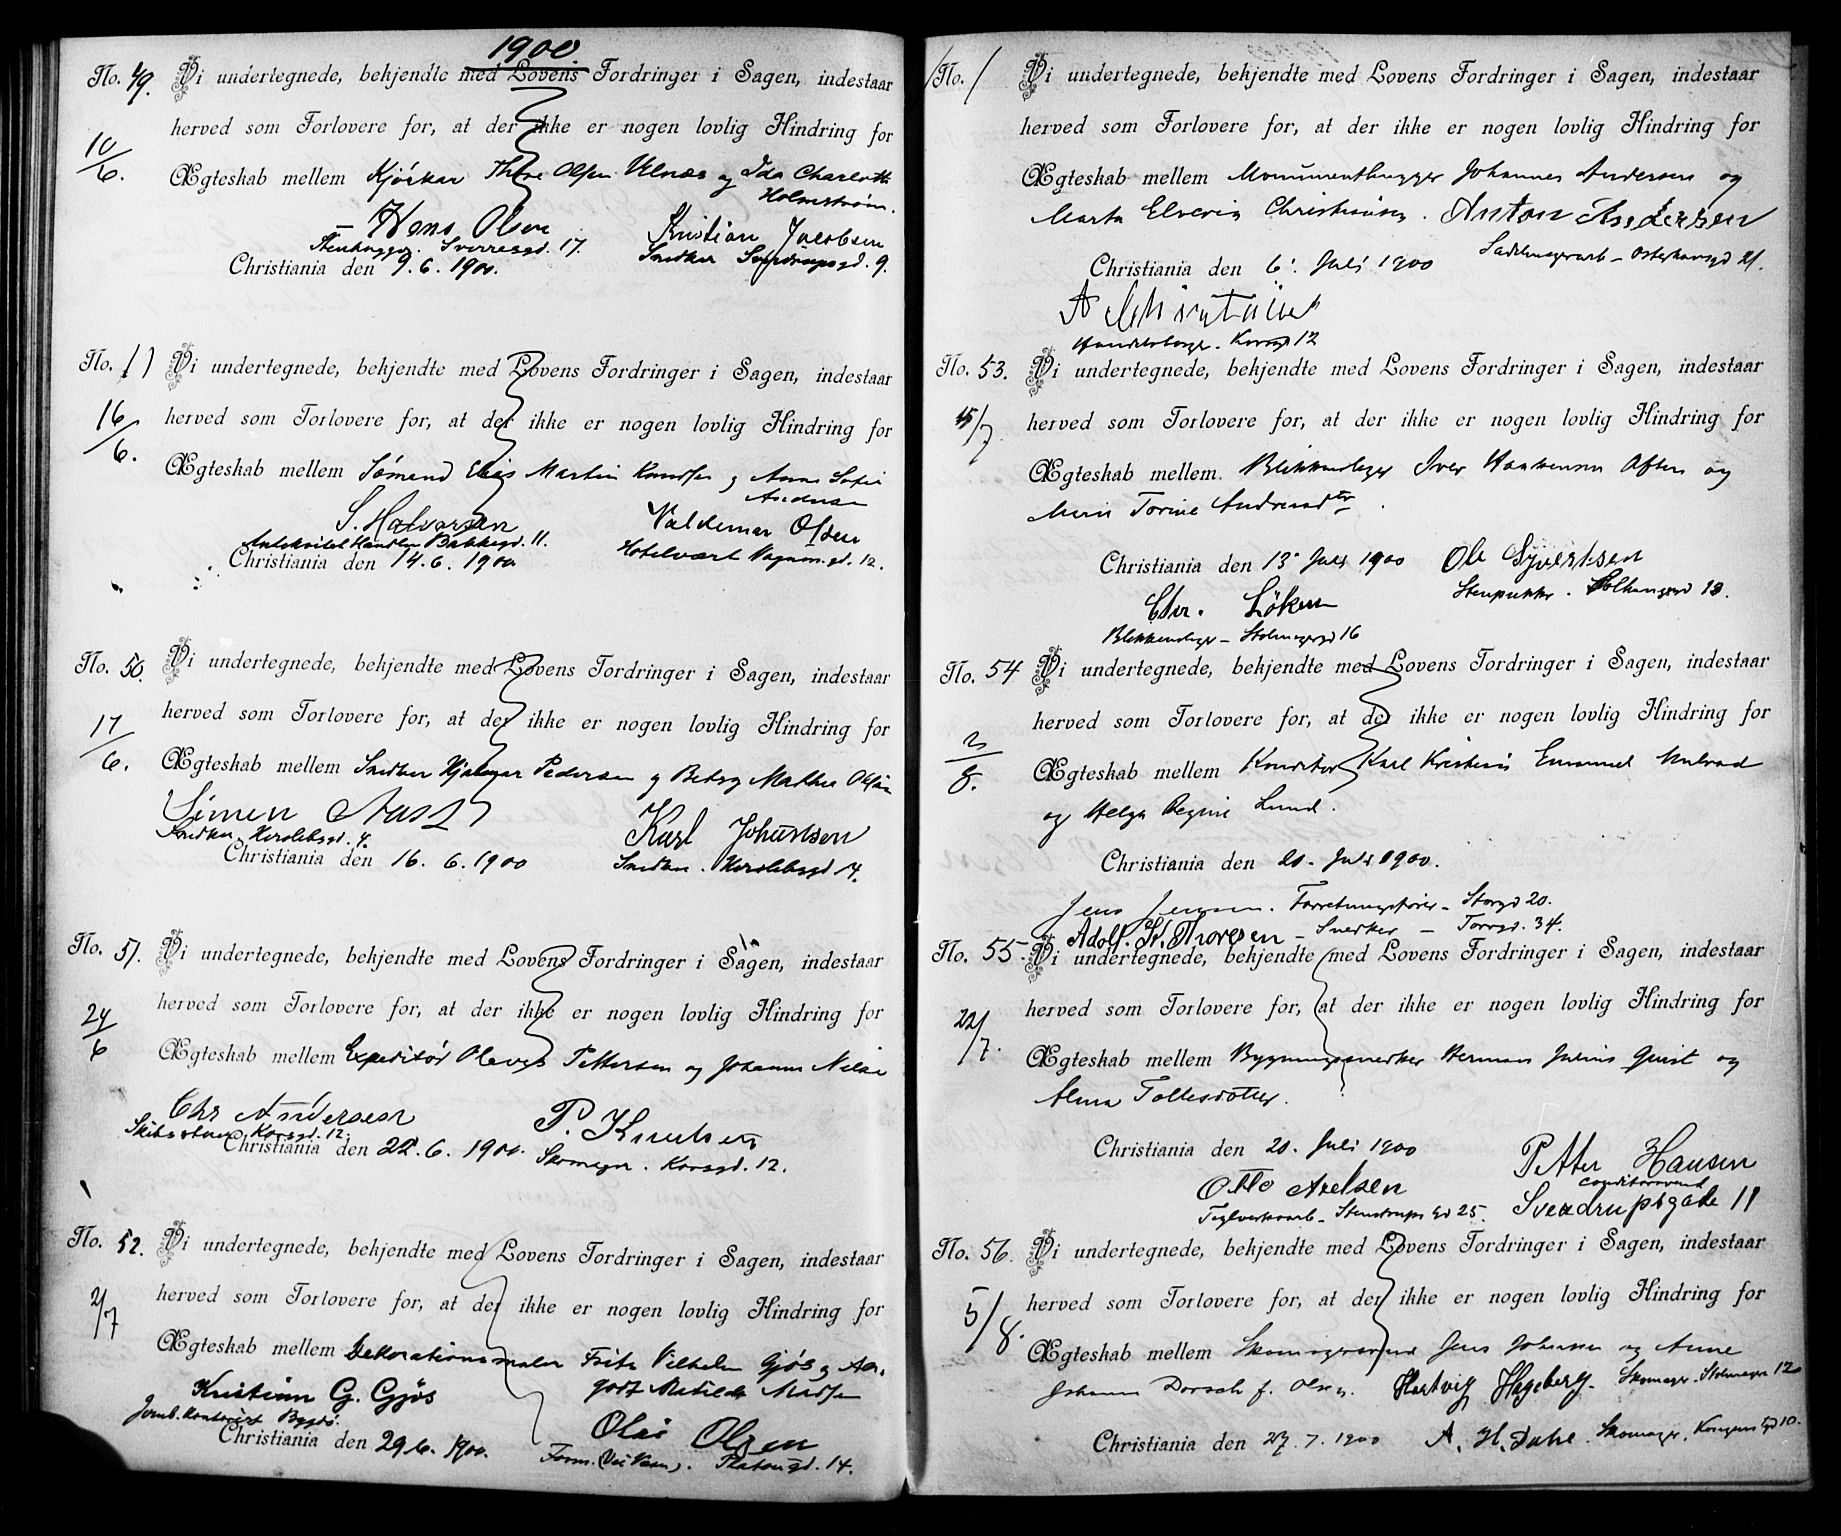 1900.
No. 49. Vi undertegnede, bekjendte med Lovens Fordringer i Sagen, indestaar
10/6. herved som Forlovere for, at der ikke er nogen lovlig Hindring for
Ægteskab mellem Kjørkar Thore Olsen Ulnæs og Ida Charlotte
Holmstrøm.
Hans Olsen Kristian Jacobsen
Stenhugger. Sverresgd. 17. Snedker Sverdrupsgd. 9.
Christiania den 9. 6. 1900.
No. 11 Vi undertegnede, bekjendte med Lovens Fordringer i Sagen, indestaar
16/6. herved som Forlovere for, at der ikke er nogen lovlig Hindring for
Ægteskab mellem Sømand Elias Martin Knudsen og Anna Sofie
Andersen
S. Halvorsen Valdemar Olsen
Antikvitet Handler Bakkegd. 11. Hotelvært Vognm.gd. 12.
Christiania den 14. 6. 1900
No. 50. Vi undertegnede, bekjendte med Lovens Fordringer i Sagen, indestaar
17/6. herved som Forlovere for, at der ikke er nogen lovlig Hindring for
Ægteskab mellem Snedker Hjalmar Pedersen og Betsy Mathea Olsen
Simen Aas Karl Johansen
Snedker Herslebsgd. 4. Snedker. Herslebsgd 4.
Christiania den 16. 6. 1900
No. 51. Vi undertegnede, bekjendte med Lovens Fordringer i Sagen, indestaar
24/6 herved som Forlovere for, at der ikke er nogen lovlig Hindring for
Ægteskab mellem Expeditør Oleves Pettersen og Johanna Nilsen
Chr Andersen P. Knutsen
Korsgd. 12. Skomager. Korsgd. 12.
Christiania den 22. 6. 1900.
No. 52. Vi undertegnede, bekjendte med Lovens Fordringer i Sagen, indestaar
2/7 herved som Forlovere for, at der ikke er nogen lovlig Hindring for
Ægteskab mellem Dekorationsmaler Fritz Vilhelm Gjøs og
Matilde Madsen
Kristian G. Gjös
Jernb. Kontorist Bygdø. Olai Olsen
Christiania den 29. 6. 1900. Form. (Vei Væsn). Platousgd. 14.
No. 1 Vi undertegnede, bekjendte med Lovens Fordringer i Sagen, indestaar
herved som Forlovere for, at der ikke er nogen lovlig Hindring for
Ægteskab mellem Monumenthugger Johannes Andersen og
Marta Elveria Christiansen. Anton Andersen
Sadelmagerarb - Osterhausgd 21.
Christiania den 6. Juli 1900
A Christensen
Korsgd 12
No. 53. Vi undertegnede, bekjendte med Lovens Fordringer i Sagen, indestaar
15/7. herved som Forlovere for, at der ikke er nogen lovlig Hindring for
Ægteskab mellem. Blikkenslager Iver Haakensen Aften og
Marie Torine Andreasdtr.
Christiania den 13. Juli 1900 Ole Syvertsen
Chr. Löken Stenpukker. 13.
Blikkenslager - Stolmagergd 16
No. 54 Vi undertegnede, bekjendte med Lovens Fordringer i Sagen, indestaar
herved som Forlovere for, at der ikke er nogen lovlig Hindring for
8. Ægteskab mellem Konditor Karl Kristian Emanuel Mulvad
og Helga Regine Lund.
Christiania den 20. Juli 1900.
Jens Jensen. Forretningsfører - Storgd 20.
Adolf. K. Thoresen - Snedker - Torvgd. 34.
No. 55 Vi undertegnede, bekjendte med Lovens Fordringer i Sagen, indestaar
22/7. herved som Forlovere for, at der ikke er nogen lovlig Hindring for
Ægteskab mellem Bygningssnedker Herman Julius Qvist og
Alma Tollesdotter.
Christiania den 20. Juli 1900 Petter Hansen
Otto Axelsen Conditorsvend
Teglverksarb - Stenstrups Gd 25. Sverdrupsgade 11
No. 56. Vi undertegnede, bekjendte med Lovens Fordringer i Sagen, indestaar
5/8. herved som Forlovere for, at der ikke er nogen lovlig Hindring for
Ægteskab mellem Skomagersvend Jens Johansen og Anne
Johanne Dorsch f. Olsen. Hartvig Hageberg. Skomager. Stolmagergd 12
Christiania den 27. 7. 1900 A. H. Dahl. Skomager. Kongens Gd 10.